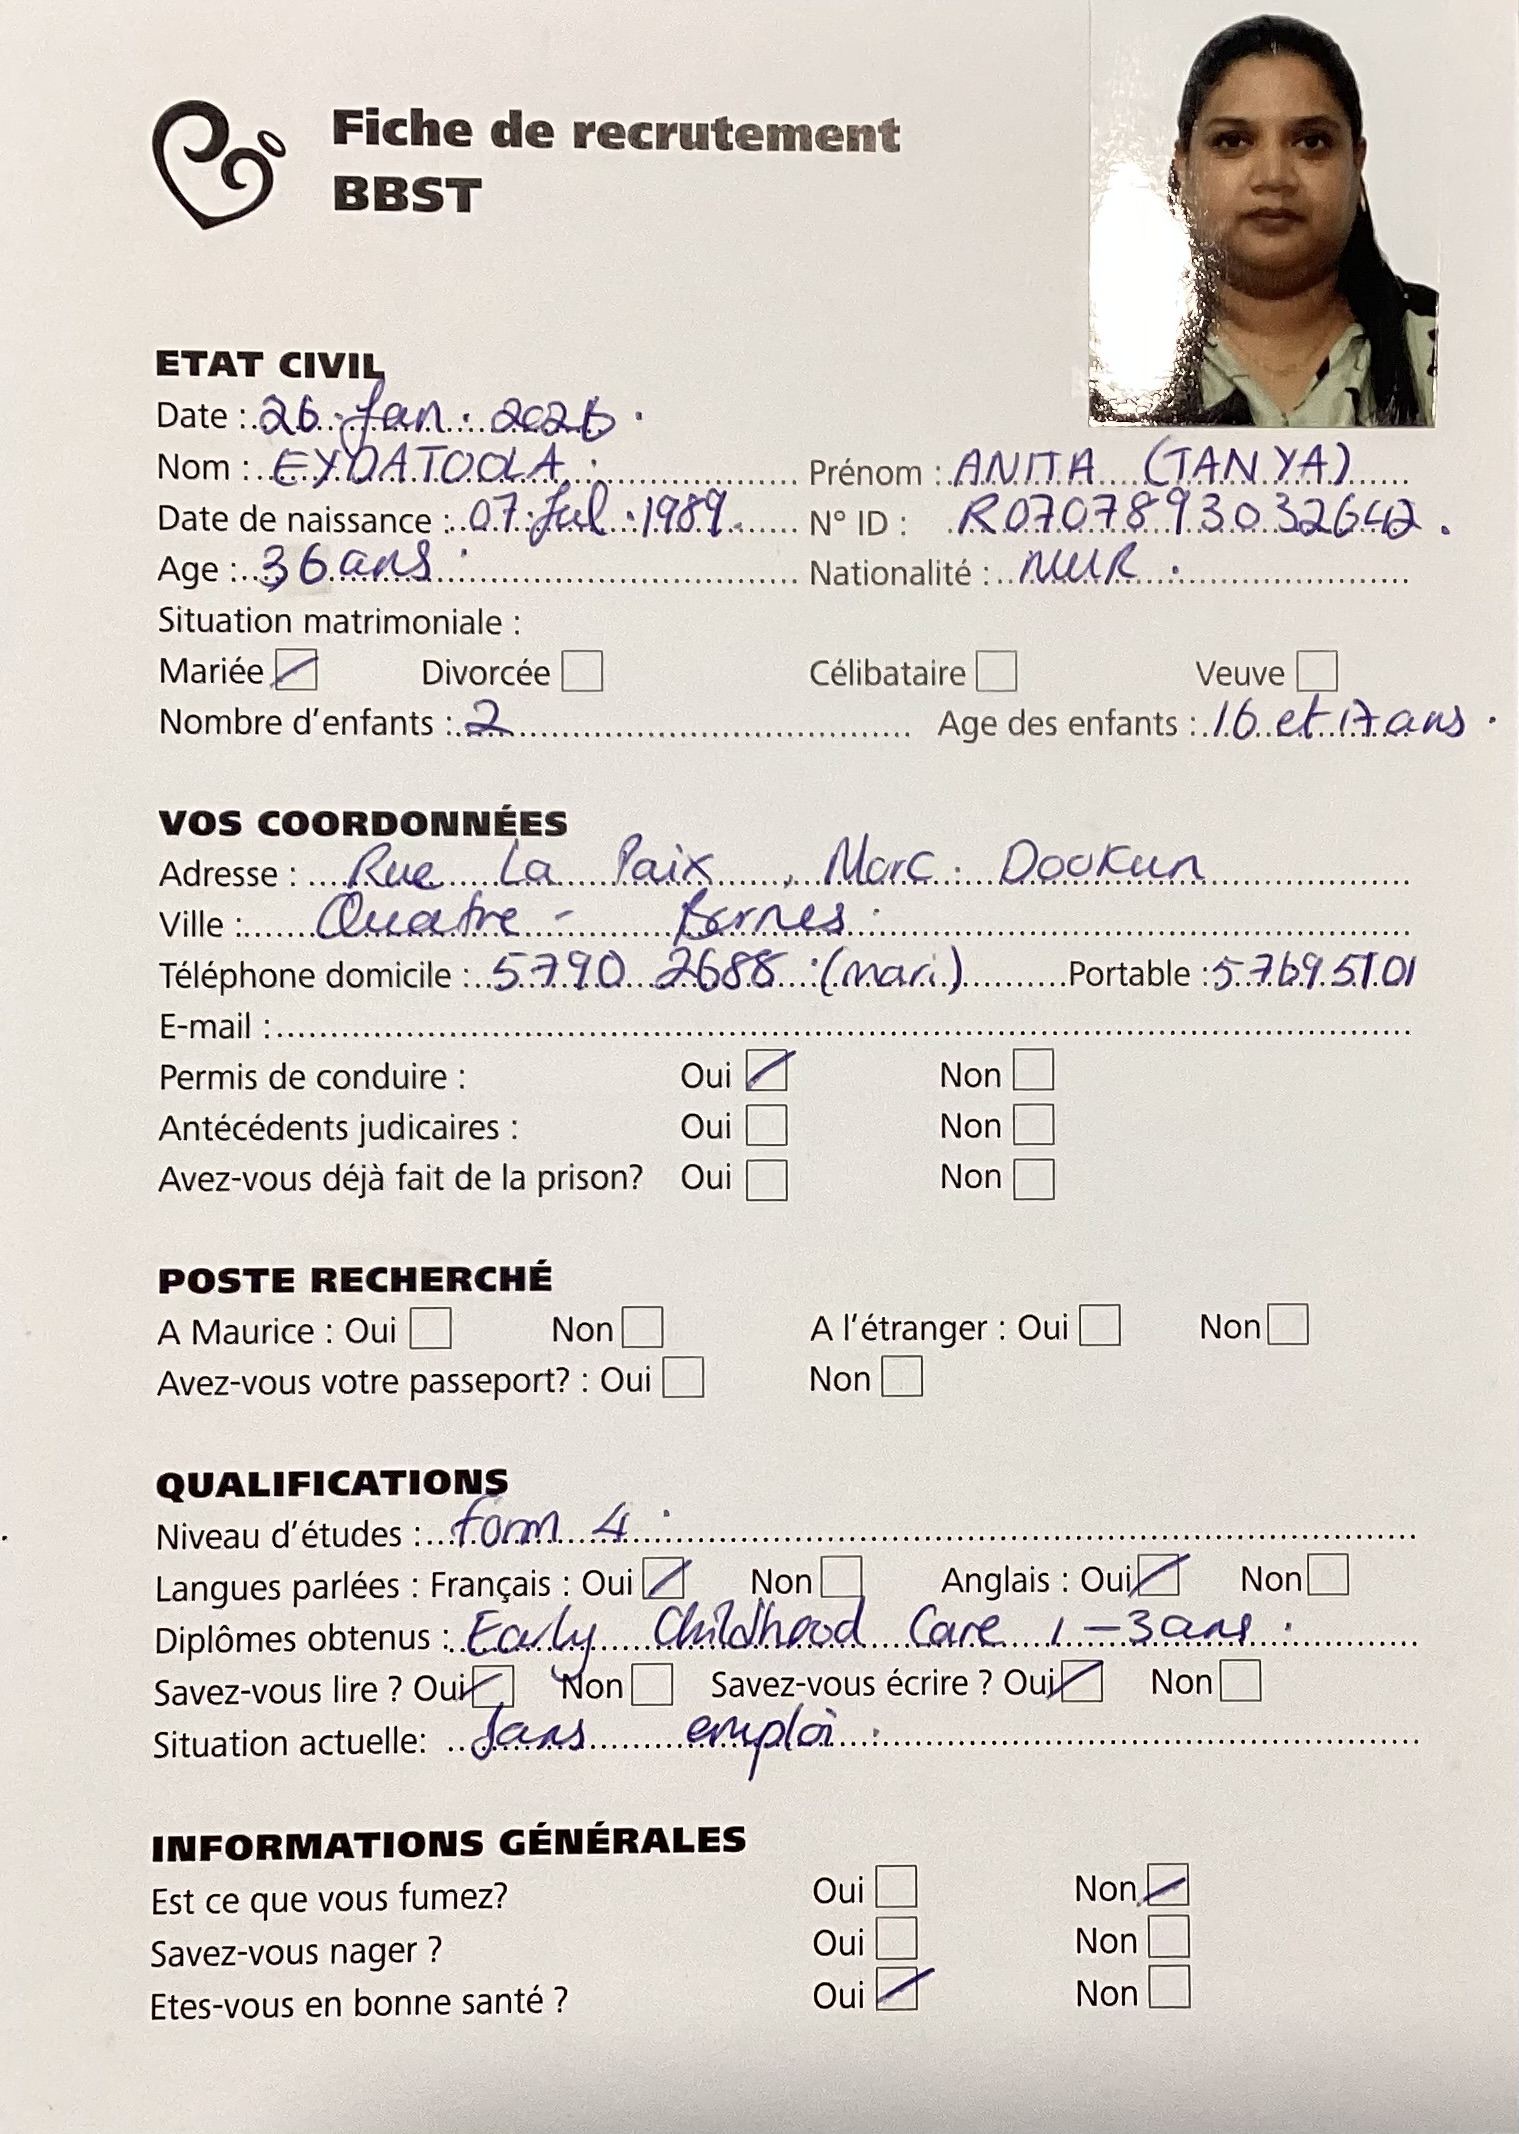 Fiche de recrutement
BBST
ETAT CIVIL
Date : 26. Jan. 2026.
Nom : EYDATOOLA. Prénom : ANITA (TANYA)
Date de naissance : 07. Jul. 1989. N° ID : R070789303264
Age : 36 ans. Nationalité : MUR.
Situation matrimoniale :
Mariée Divorcée Célibataire Veuve
Nombre d'enfants : 2 Age des enfants : 16 et 17 ans.
VOS COORDONNÉES
Adresse : Rue La Paix, Marc. Dookun
Ville : Quatre - Bornes.
Téléphone domicile : 5790 2688 (mari) Portable : 5769 5101
E-mail :
Permis de conduire : Oui Non
Antécédents judicaires : Oui Non
Avez-vous déjà fait de la prison? Oui Non
POSTE RECHERCHÉ
A Maurice : Oui Non A l'étranger : Oui Non
Avez-vous votre passeport? : Oui Non
QUALIFICATIONS
Niveau d'études : form 4.
Langues parlées : Français : Oui Non Anglais : Oui Non
Diplômes obtenus : Early Childhood Care 1-3 ans.
Savez-vous lire ? Oui Non Savez-vous écrire ? Oui Non
Situation actuelle: Sans emploi.
INFORMATIONS GÉNÉRALES
Est ce que vous fumez? Oui Non
Savez-vous nager ? Oui Non
Etes-vous en bonne santé ? Oui Non